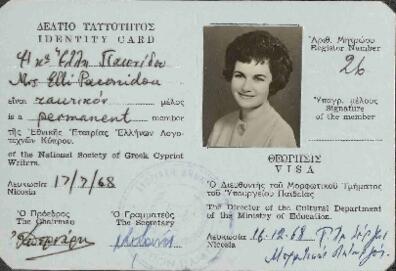 ΔΕΛΤΙΟ ΤΑΥΤΟΤΗΤΟΣ
IDENTITY CARD
Ἡ κα Ἕλλη Παιονίδου
Mrs Elli Paeonidou
εἶναι τακτικόν μέλος
is a permanent member
τῆς Ἐθνικῆς Ἑταιρείας Ἑλλήνων Λογο-
τεχνῶν Κύπρου.
of the National Society of Greek Cypriot
Writers.
Λευκωσία 17/7/68
Nicosia
Ὁ Πρόεδρος Ὁ Γραμματεύς
The Chairman The Secretary
Ἀριθ. Μητρώου
Register Number
26
Ὑπογρ. μέλους
Signature
of the member
ΘΕΩΡΗΣΙΣ
VISA
Ὁ Διευθυντής τοῦ Μορφωτικοῦ Τμήματος
τοῦ Ὑπουργείου Παιδείας
The Director of the Cultural Department
of the Ministry of Education.
Λευκωσία 16-12-68
Nicosia